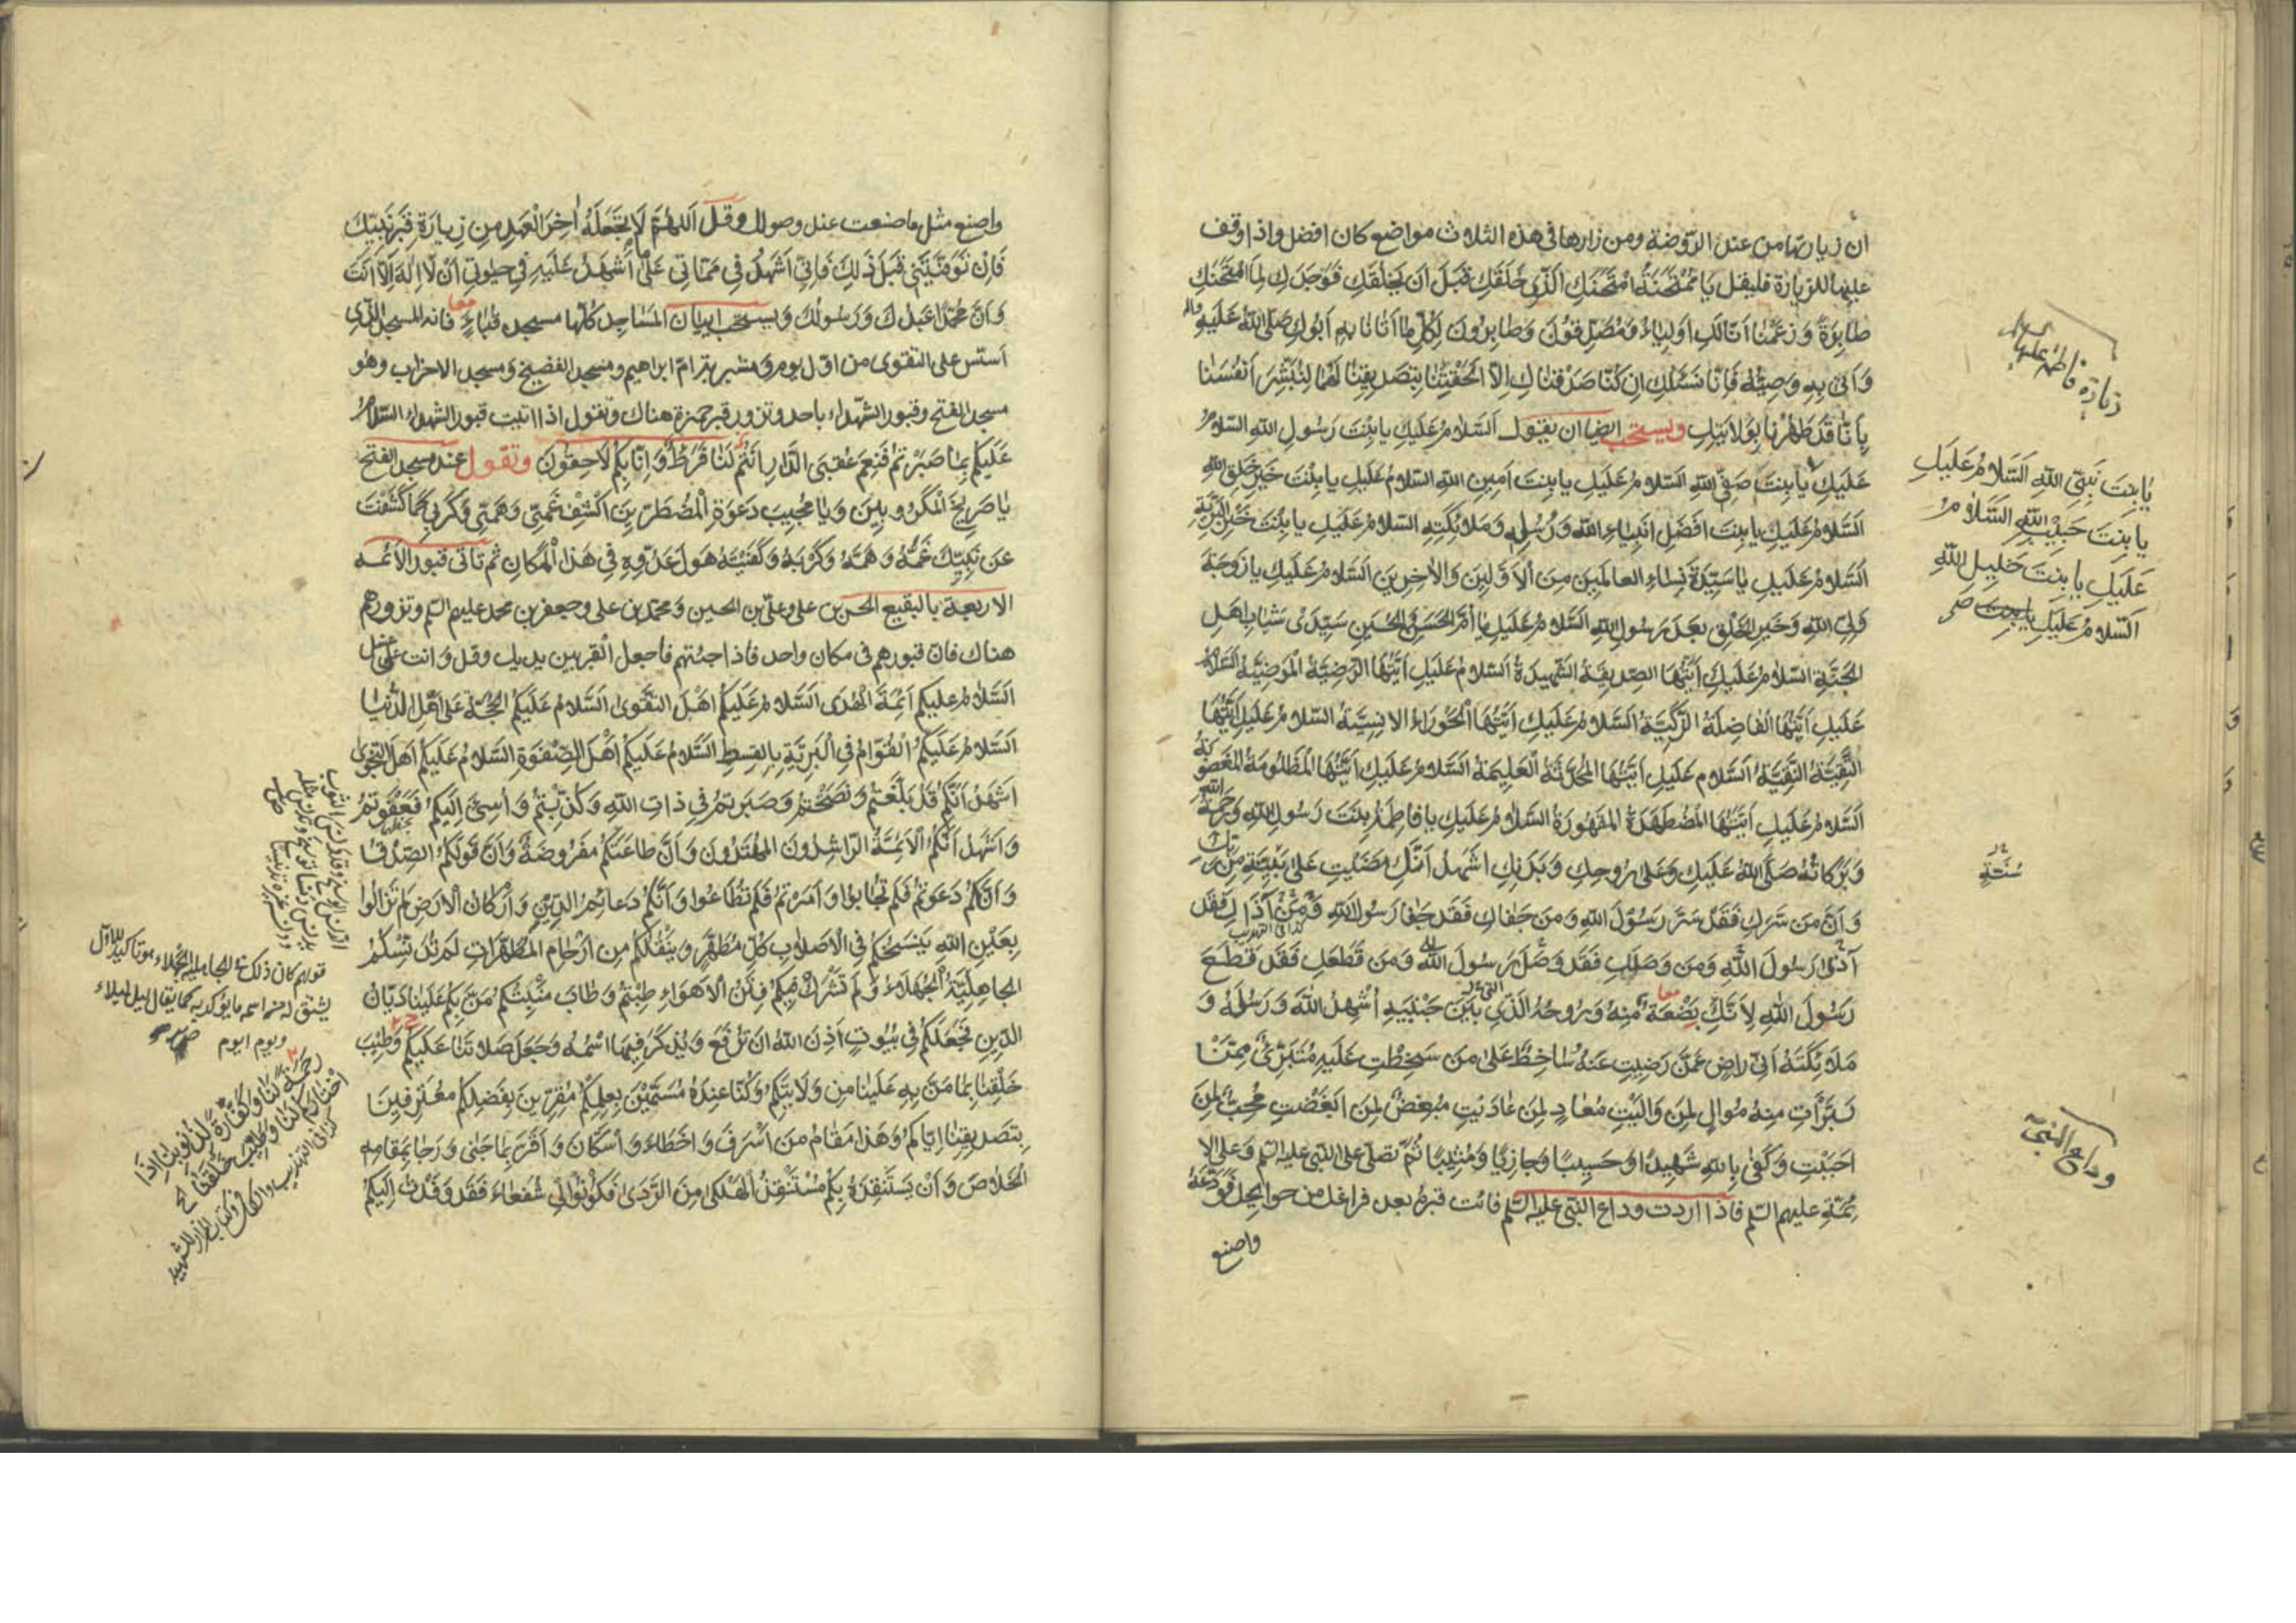 ان زيارتها من عند الروضة ومن زارها في هذه الثلاث مواضع كان افضل واذا وقف
عليها للزيارة فليقل يَا مُمْتَحَنَةُ امْتَحَنَكِ الَّذِي خَلَقَكِ قَبْلَ اَنْ يَخْلُقَكِ فَوَجَدَكِ لِمَا امْتَحَنَكِ
صَابِرَةً وَزَعَمْنَا اَنَّا لَكِ اَوْلِيَاءُ وَمُصَدِّقُونَ وَصَابِرُونَ لِكُلِّ مَا اَتَانَا بِهِ اَبُوكِ صَلَّى اللهُ عَلَيْهِ وآله
وَاَتَى بِهِ وَصِيُّهُ فَاِنَّا نَسْئَلُكِ اِنْ كُنَّا صَدَّقْنَاكِ اِلَّا اَلْحَقْتِنَا بِتَصْدِيقِنَا لَهُمَا لِنُبَشِّرَ اَنْفُسَنَا
بِاَنَّا قَدْ طَهُرْنَا بِوَلَايَتِكِ ويستحب ايضا ان يقول اَلسَّلَامُ عَلَيْكِ يَا بِنْتَ رَسُولِ اللهِ السَّلَامُ
عَلَيْكِ يَا بِنْتَ صَفِيِّ اللهِ السَّلَامُ عَلَيْكِ يَا بِنْتَ اَمِينِ اللهِ السَّلَامُ عَلَيْكِ يَا بِنْتَ خَيْرِ خَلْقِ اللهِ
اَلسَّلَامُ عَلَيْكِ يَا بِنْتَ اَفْضَلِ اَنْبِيَاءِ اللهِ وَرُسُلِهِ وَمَلَائِكَتِهِ السَّلَامُ عَلَيْكِ يَا بِنْتَ خَيْرِ الْبَرِيَّةِ
اَلسَّلَامُ عَلَيْكِ يَا سَيِّدَةَ نِسَاءِ الْعَالَمِينَ مِنَ الْاَوَّلِينَ وَالْاٰخِرِينَ اَلسَّلَامُ عَلَيْكِ يَا زَوْجَةَ
وَلِيِّ اللهِ وَخَيْرِ الْخَلْقِ بَعْدَ رَسُولِ اللهِ السَّلَامُ عَلَيْكِ يَا اُمَّ الْحَسَنِ وَالْحُسَيْنِ سَيِّدَيْ شَبَابِ اَهْلِ
الْجَنَّةِ السَّلَامُ عَلَيْكِ اَيَّتُهَا الصِّدِّيقَةُ الشَّهِيدَةُ اَلسَّلَامُ عَلَيْكِ اَيَّتُهَا الرَّضِيَّةُ الْمَرْضِيَّةُ السَّلَامُ
عَلَيْكِ اَيَّتُهَا الْفَاضِلَةُ الزَّكِيَّةُ اَلسَّلَامُ عَلَيْكِ اَيَّتُهَا الْحَوْرَاءُ الْاِنْسِيَّةُ السَّلَامُ عَلَيْكِ اَيَّتُهَا
التَّقِيَّةُ النَّقِيَّةُ اَلسَّلَامُ عَلَيْكِ اَيَّتُهَا الْمُحَدَّثَةُ الْعَلِيمَةُ السَّلَامُ عَلَيْكِ اَيَّتُهَا الْمَظْلُومَةُ الْمَغْصُوبَةُ
اَلسَّلَامُ عَلَيْكِ اَيَّتُهَا الْمُضْطَهَدَةُ الْمَقْهُورَةُ السَّلَامُ عَلَيْكِ يَا فَاطِمَةُ بِنْتَ رَسُولِ اللهِ وَرَحْمَةُ اللهِ
وَبَرَكَاتُهُ صَلَّى اللهُ عَلَيْكِ وَعَلَى رُوحِكِ وَبَدَنِكِ اَشْهَدُ اَنَّكِ مَضَيْتِ عَلَى بَيِّنَةٍ مِنْ رَبِّكِ
وَاَنَّ مَنْ سَرَّكِ فَقَدْ سَرَّ رَسُولَ اللهِ وَمَنْ جَفَاكِ فَقَدْ جَفَا رَسُولَ اللهِ وَمَنْ آذَاكِ فَقَدْ
كذا في التهذيب
آذَى رَسُولَ اللهِ وَمَنْ وَصَلَكِ فَقَدْ وَصَلَ رَسُولَ اللهِ وَمَنْ قَطَعَكِ فَقَدْ قَطَعَ
رَسُولَ اللهِ لِاَنَّكِ بَضْعَةٌ مِنْهُ وَرُوحُهُ الَّذِي بَيْنَ جَنْبَيْهِ اُشْهِدُ اللهَ وَرَسُولَهُ وَ
مَلَائِكَتَهُ اَنِّي رَاضٍ عَمَّنْ رَضِيتِ عَنْهُ سَاخِطٌ عَلَى مَنْ سَخِطْتِ عَلَيْهِ مُتَبَرِّئٌ مِمَّنْ
تَبَرَّأْتِ مِنْهُ مُوَالٍ لِمَنْ وَالَيْتِ مُعَادٍ لِمَنْ عَادَيْتِ مُبْغِضٌ لِمَنْ اَبْغَضْتِ مُحِبٌّ لِمَنْ
اَحْبَبْتِ وَكَفَى بِاللهِ شَهِيدًا وَحَسِيبًا وَجَازِيًا وَمُثِيبًا ثُمَّ تصلّي على النبي عليه السلم وَعلى الا
ئمّةِ عليهم السلم فاذا اردت وداع النبي عليه السلم فائت قبره بعد فراغك من حوائجك فودّعه
واصنع
زيارة فاطمة عليها
يَا بِنْتَ نَبِيِّ اللهِ اَلسَّلَامُ عَلَيْكِ
يَا بِنْتَ حَبِيبِ اللهِ السَّلَامُ
عَلَيْكِ يَا بِنْتَ خَلِيلِ اللهِ
اَلسَّلَامُ عَلَيْكِ يَا بِنْتَ صح
وداع النبيّ
واصنع مثل ما صنعت عند وصولك وقل اَللّٰهُمَّ لَا تَجْعَلْهُ اٰخِرَ الْعَهْدِ مِنْ زِيَارَةِ قَبْرِ نَبِيِّكَ
فَاِنْ تَوَفَّيْتَنِي قَبْلَ ذٰلِكَ فَاِنِّي اَشْهَدُ فِي مَمَاتِي عَلَى مَا اَشْهَدُ عَلَيْهِ فِي حَيٰوتِي اَنْ لَا اِلٰهَ اِلَّا اَنْتَ
وَاَنَّ مُحَمَّدًا عَبْدُكَ وَرَسُولُكَ ويستحب اتيان الْمَسَاجِدِ كُلِّهَا مسجد قُبَاءٍ فانه المسجد الّذي
اُسّس على التقوى من اوّل يوم ومشربة امّ ابراهيم ومسجد الفضيخ وَمسجد الاحزاب وهو
مسجد الفتح وقبور الشّهداء باحد وتزور قبر حمزة هناك وتقول اذا اتيت قبور الشهداء السَّلَامُ
عَلَيْكُمْ بِمَا صَبَرْتُمْ فَنِعْمَ عُقْبَى الدَّارِ اَنْتُمْ لَنَا فَرَطٌ وَاِنَّا بِكُمْ لَاحِقُونَ وتقول عند مسجد الفتح
يَا صَرِيخَ الْمَكْرُوبِينَ وَيَا مُجِيبَ دَعْوَةِ الْمُضْطَرِّينَ اكْشِفْ غَمِّي وَهَمِّي وَكَرْبِي كَمَا كَشَفْتَ
عَنْ نَبِيِّكَ غَمَّهُ وَهَمَّهُ وَكَرْبَهُ وَكَفَيْتَهُ هَوْلَ عَدُوِّهِ فِي هَذَا الْمَكَانِ ثم تاتى قبور الأئمه
الاربعة بالبقيع الحسن بن علي وعليّ بن الحسين ومحمّد بن علي وجعفر بن محمد عليهم السلم وتزورهم
هناك فانّ قبورهم في مكان واحد فاذا جئتهم فاجعل القبر بين يديك وقل وانت على غسل
اَلسَّلَامُ عليكم اَئِمَّةَ الْهُدَى اَلسَّلَامُ عَلَيْكُمْ اَهْلَ التَّقْوَى اَلسَّلَامُ عَلَيْكُمُ الْحُجَّةَ عَلَى اَهْلِ الدُّنْيَا
اَلسَّلَامُ عَلَيْكُمُ الْقُوَّامُ فِي الْبَرِيَّةِ بِالْقِسْطِ اَلسَّلَامُ عَلَيْكُمْ اَهْلَ الصَّفْوَةِ السَّلَامُ عَلَيْكُمْ اَهْلَ النَّجْوَى
اَشْهَدُ اَنَّكُمْ قَدْ بَلَّغْتُمْ وَنَصَحْتُمْ وَصَبَرْتُمْ فِي ذَاتِ اللهِ وَكُذِّبْتُمْ وَاُسِيءَ اِلَيْكُمْ فَعَفَوْتُمْ
وَاَشْهَدُ اَنَّكُمُ الْاَئِمَّةُ الرَّاشِدُونَ الْمُهْتَدُونَ وَاَنَّ طَاعَتَكُمْ مَفْرُوضَةٌ وَاَنَّ قَوْلَكُمُ الصِّدْقُ
وَاَنَّكُمْ دَعَوْتُمْ فَلَمْ تُجَابُوا وَاَمَرْتُمْ فَلَمْ تُطَاعُوا وَاَنَّكُمْ دَعَائِمُ الدِّينِ وَاَرْكَانُ الْاَرْضِ لَمْ تَزَالُوا
بِعَيْنِ اللهِ يَنْسَخُكُمْ فِي الْاَصْلَابِ كُلِّ مُطَهَّرٍ وَيَنْقُلُكُمْ مِنْ اَرْحَامِ الْمُطَهَّرَاتِ لَمْ تُدَنِّسْكُمُ
الْجَاهِلِيَّةُ الْجُهَلَاءُ وَلَمْ تَشْرَكْ فِيكُمْ فِتَنُ الْاَهْوَاءِ طِبْتُمْ وَطَابَ مَنْبِتُكُمْ مَنَّ بِكُمْ عَلَيْنَا دَيَّانُ
الدِّينِ فَجَعَلَكُمْ فِي بُيُوتٍ اَذِنَ اللهُ اَنْ تُرْفَعَ وَيُذْكَرَ فِيهَا اسْمُهُ وَجَعَلَ صَلَاتَنَا عَلَيْكُمْ وَطَيَّبَ
خَلْقَنَا بِمَا مَنَّ بِهِ عَلَيْنَا مِنْ وَلَايَتِكُمْ وَكُنَّا عِنْدَهُ مُسَمَّيْنَ بِعِلْمِكُمْ مُقِرِّينَ بِفَضْلِكُمْ مُعْتَرِفِينَ
بِتَصْدِيقِنَا اِيَّاكُمْ وَهَذَا مَقَامُ مَنْ اَسْرَفَ وَاَخْطَاَ وَاسْتَكَانَ وَاَقَرَّ بِمَا جَنَى وَرَجَا بِمَقَامِهِ
الْخَلَاصَ وَاَنْ يَسْتَنْقِذَهُ بِكُمْ مُسْتَنْقِذُ الْهَلْكَى مِنَ الرَّدَى فَكُونُوا لِي شُفَعَاءَ فَقَدْ وَفَدْتُ اِلَيْكُمْ
قولهم كان ذلك في الجاهلية الجهلاء هو تاكيد للاول
يشتق له من اسمه ما يؤكد به كما يقال ليل ليلاء
ويوم ايوم
رحمة لنا وكفارة لذنوبنا اذ
كذا في التهذيب